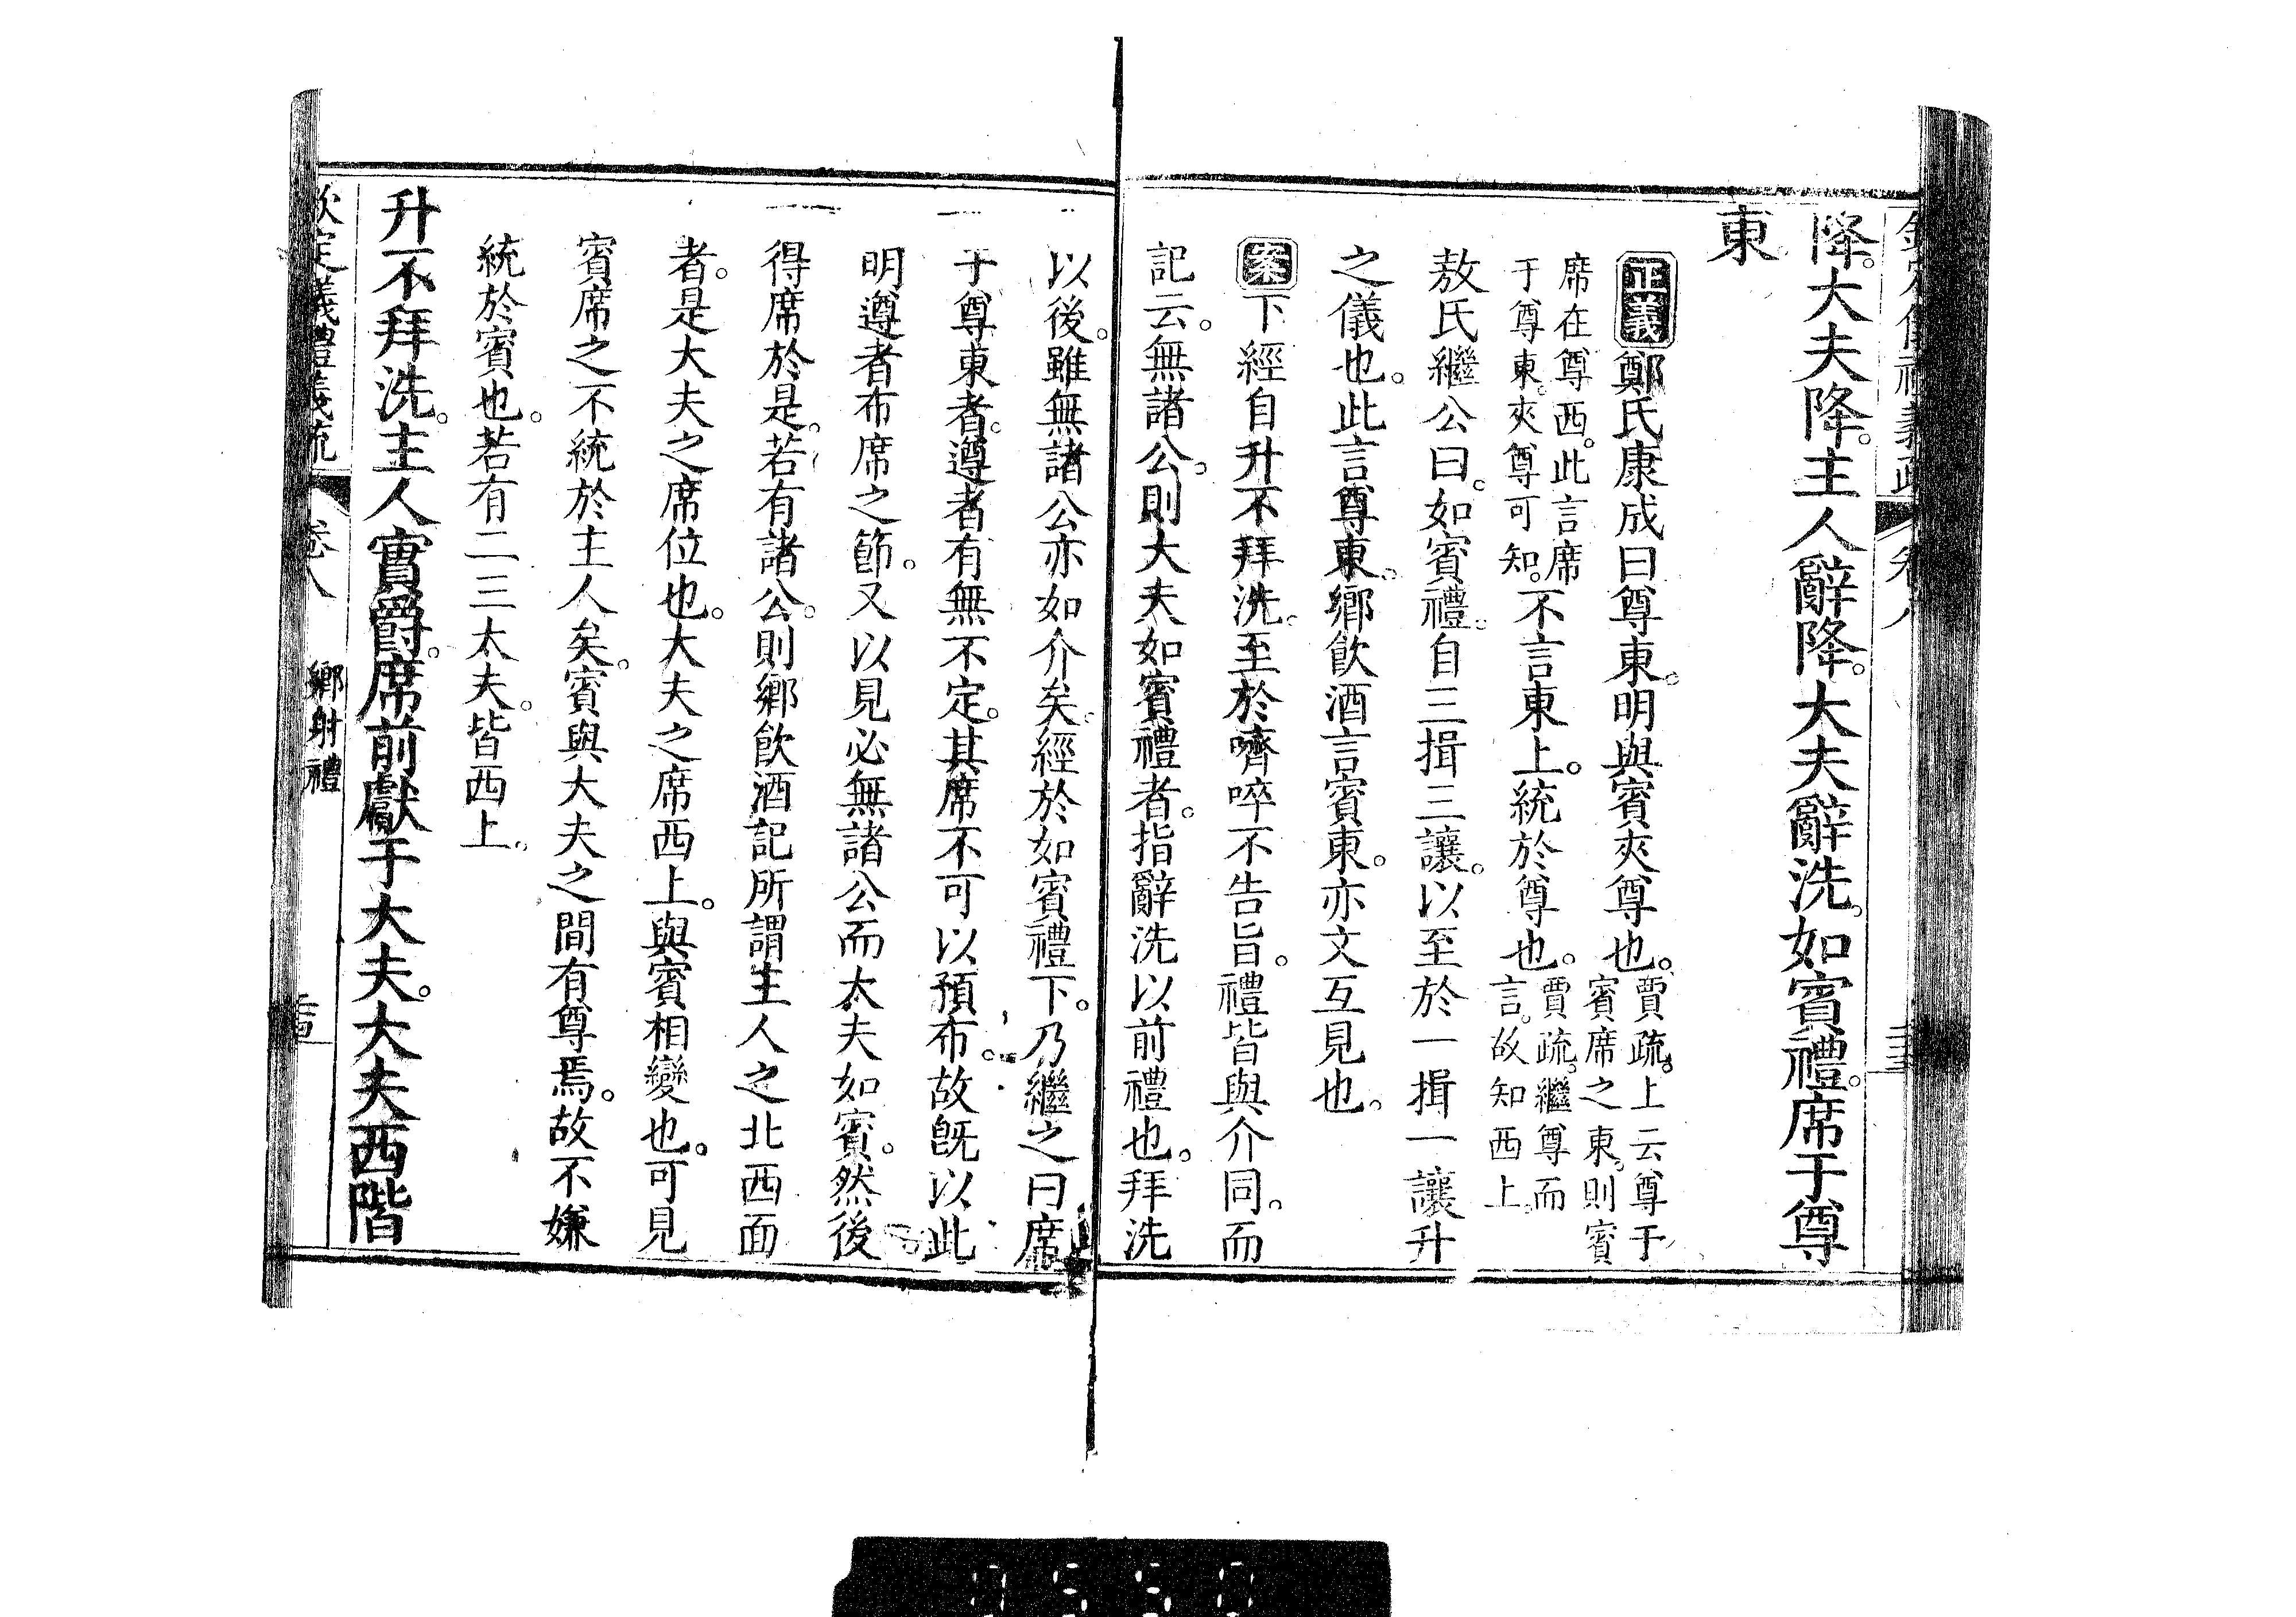 降。大夫降。主人辭降。大夫辭洗。如賓禮。席于尊
東
正義鄭氏康成曰尊東。明與賓夾尊也。賈疏。上云尊于賓席之東。則賓
席在尊西。此言席于尊東。夾尊可知。不言東上。統於尊也。賈疏。繼尊而言。故知西上。
敖氏繼公曰。如賓禮。自三揖三讓。以至於一揖一讓升
之儀也。此言尊東。鄉飲酒言賓東。亦文互見也。
案下經自升不拜洗。至於嚌啐不告旨。禮皆與介同。而
記云。無諸公。則大夫如賓禮者。指辭洗以前禮也。拜洗
以後。雖無諸公亦如介矣。經於如賓禮下。乃繼之曰席
于尊東者。遵者有無不定。其席不可以預布。故旣以此
明遵者布席之節。又以見必無諸公而大夫如賓。然後
得席於是。若有諸公。則鄉飲酒記所謂主人之北西面
者。是大夫之席位也。大夫之席西上。與賓相變也。可見
賓席之不統於主人矣。賓與大夫之間有尊焉。故不嫌
統於賓也。若有二三大夫。皆西上。
升不拜洗。主人實爵。席前獻于大夫。大夫西階
欽定儀禮義疏 卷八 鄉射禮